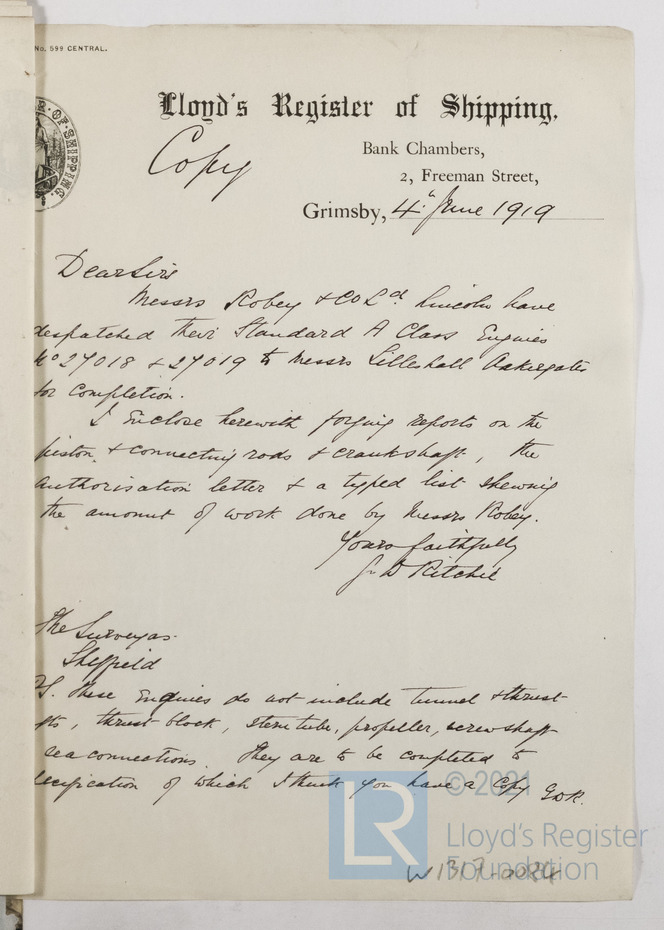 No. 599 CENTRAL.
R·OF·SHIPPING.
Lloyd's Register of Shipping.
Copy
Bank Chambers,
2, Freeman Street,
Grimsby, 4th June 1919
Dear Sirs
Messrs Robey & Co Ld Lincoln have
despatched their Standard A Class Engines
No 27018 & 27019 to Messrs Lilleshall Oakengates
for completion.
I enclose herewith forging reports on the
piston & connecting rods & crankshaft, the
authorisation letter & a typed list shewing
the amount of work done by Messrs Robey.
Yours faithfully
D Ritchie
The Surveyors
Sheffield
S. These Engines do not include tunnel & thrust
fts, thrust block, stern tube, propeller, screwshaft
sea connections. They are to be completed to
ecification of which I think you have a copy
© 2021
LR
Lloyd's Register
Foundation
W1317-0084